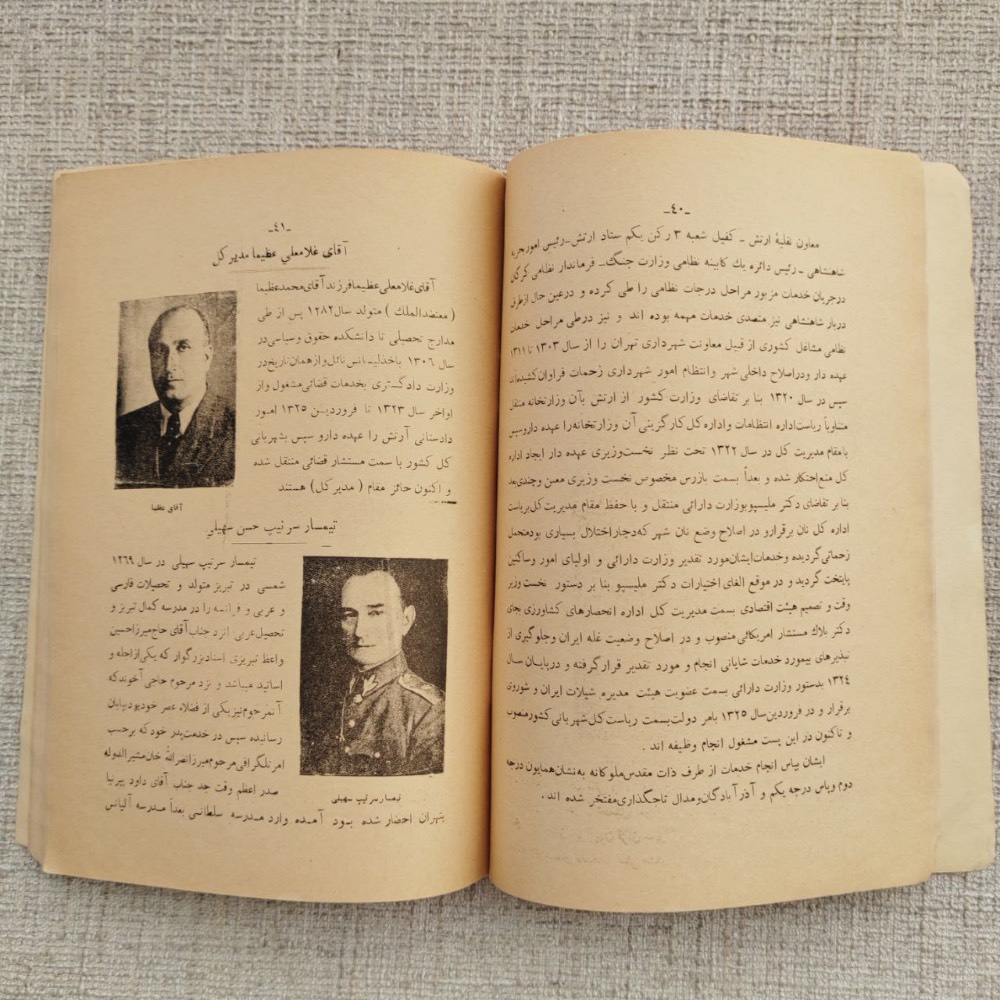 -٤٠-
معاون نقلیهٔ ارتش - کفیل شعبه ۳ رکن یکم ستاد ارتش - رئیس امور بحریه
شاهنشاهی - رئیس دائره یك کابینه نظامی وزارت جنگ - فرماندار نظامی گرگان
درجریان خدمات مزبور مراحل درجات نظامی را طی کرده و درعین حال ازطرف
دربار شاهنشاهی نیز متصدی خدمات مهمه بوده اند و نیز درطی مراحل خدمات
نظامی مشاغل کشوری از قبیل معاونت شهرداری تهران را از سال ۱۳۰۳ تا ۱۳۱۱
عهده دار ودراصلاح داخلی شهر وانتظام امور شهرداری زحمات فراوان کشیده‌اند
سپس در سال ۱۳۲۰ بنا بر تقاضای وزارت کشور از ارتش بآن وزارتخانه منتقل
متناوباً ریاست اداره انتظامات واداره کل کارگزینی آن وزارتخانه را عهده داروسپس
بامقام مدیریت کل در سال ۱۳۲۲ تحت نظر نخست‌وزیری عهده دار ایجاد اداره
کل منع احتکار شده و بعداً بسمت بازرس مخصوص نخست وزیری معین وچندی‌بعد
بنا بر تقاضای دکتر ملیسپو بوزارت دارائی منتقل و با حفظ مقام مدیریت کل بریاست
اداره کل نان برقرارو در اصلاح وضع نان شهر که‌دچاراختلال بسیاری بودمتحمل
زحماتی گردیده وخدمات ایشان مورد تقدیر وزارت دارائی و اولیای امور وساکنین
پایتخت گردید و در موقع الغای اختیارات دکتر ملیسپو بنا بر دستور نخست وزیر
وقت و تصمیم هیئت اقتصادی بسمت مدیریت کل اداره انحصارهای کشاورزی بجای
دکتر بلاك مستشار امریکائی منصوب و در اصلاح وضعیت غله ایران وجلوگیری از
تبذیرهای بیمورد خدمات شایانی انجام و مورد تقدیر قرار گرفته و درپایان سال
۱۳۲٤ بدستور وزارت دارائی بسمت عضویت هیئت مدیره شیلات ایران و شوروی
برقرار و در فروردین سال ۱۳۲٥ بامر دولت بسمت ریاست کل شهربانی کشورمنصوب
و تاکنون در این پست مشغول انجام وظیفه اند .
ایشان بپاس انجام خدمات از طرف ذات مقدس ملوکانه به نشان همایون درجه
دوم وپاس درجه یکم و آذر آبادگان ومدال تاجگذاری مفتخر شده اند .
-٤١-
آقای غلامعلی عظیما مدیرکل
آقای غلامعلی عظیما فرزند آقای محمد عظیما
( معتضد الملك ) متولد سال ۱۲۸۲ پس از طی
مدارج تحصیلی تا دانشکده حقوق وسیاسی در
سال ۱۳۰٦ باخذ لیسانس نائل و از همان تاریخ در
وزارت دادگستری بخدمات قضائی مشغول و از
اواخر سال ۱۳۲۳ تا فروردین ۱۳۲٥ امور
دادستانی آرتش را عهده دارو سپس بشهربانی
کل کشور با سمت مستشار قضائی منتقل شده
و اکنون حائز مقام ( مدیرکل ) هستند
آقای عظیما
تیمسار سرتیپ حسن سهیلی
تیمسار سرتیپ سهیلی در سال ۱۲٦۹
شمسی در تبریز متولد و تحصیلات فارسی
و عربی و فرانسه را در مدرسه کمال تبریز و
تحصیل عربی نزد جناب آقای حاج‌میرزاحسین
واعظ تبریزی استاد بزرگوار که یکی ازاجله و
اساتید میباشد و نزد مرحوم حاجی آخوند که
آنمرحوم نیز یکی از فضلاء عصر خودبود بپایان
رسانیده سپس در خدمت پدر خود که برحسب
امر تلگرافی مرحوم میرزا نصرالله خان مشیرالدوله
صدر اعظم وقت جد جناب آقای داود پیرنیا
بتهران احضار شده بود آمده وارد مدرسه سلطانی بعداً مدرسه آلیانس
تیمسار سرتیپ سهیلی